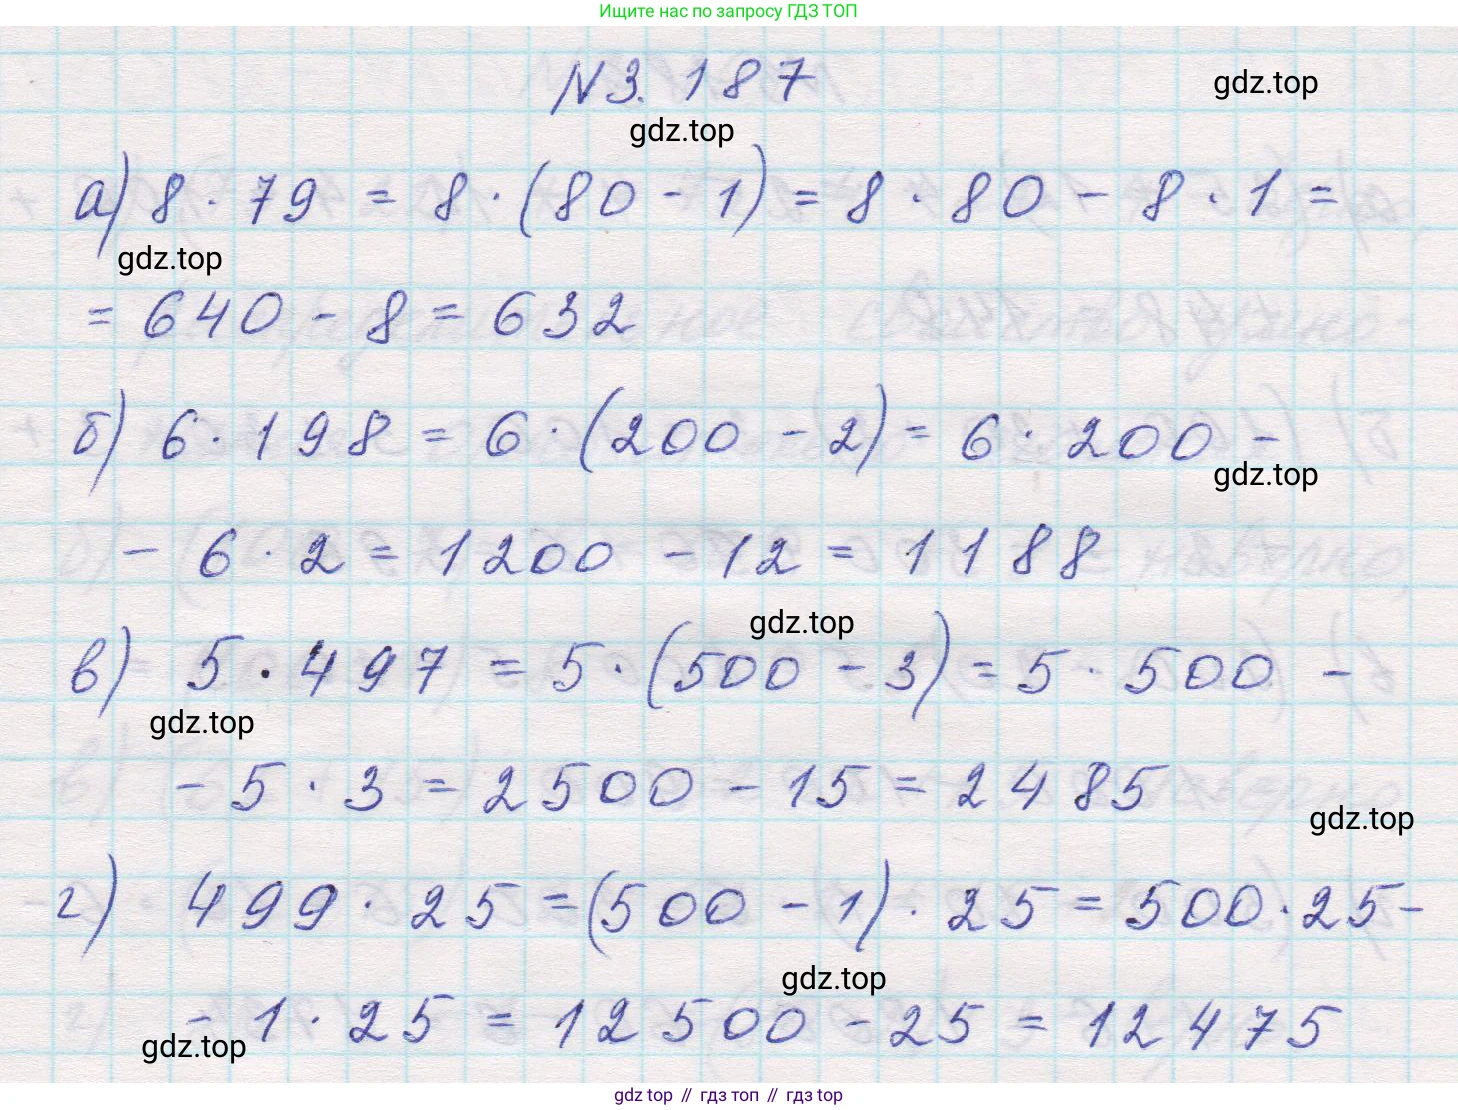 Ищите нас по запросу ГДЗ ТОП
N 3.187
gdz.top
gdz.top
а) 8 · 79 = 8 · (80 - 1) = 8 · 80 - 8 · 1 =
gdz.top
= 640 - 8 = 632
б) 6 · 198 = 6 · (200 - 2) = 6 · 200 -
gdz.top
- 6 · 2 = 1200 - 12 = 1188
gdz.top
в) 5 · 497 = 5 · (500 - 3) = 5 · 500 -
gdz.top
- 5 · 3 = 2500 - 15 = 2485
gdz.top
г) 499 · 25 = (500 - 1) · 25 = 500 · 25 -
gdz.top
- 1 · 25 = 12500 - 25 = 12475
gdz.top
gdz top // гдз топ // гдз top